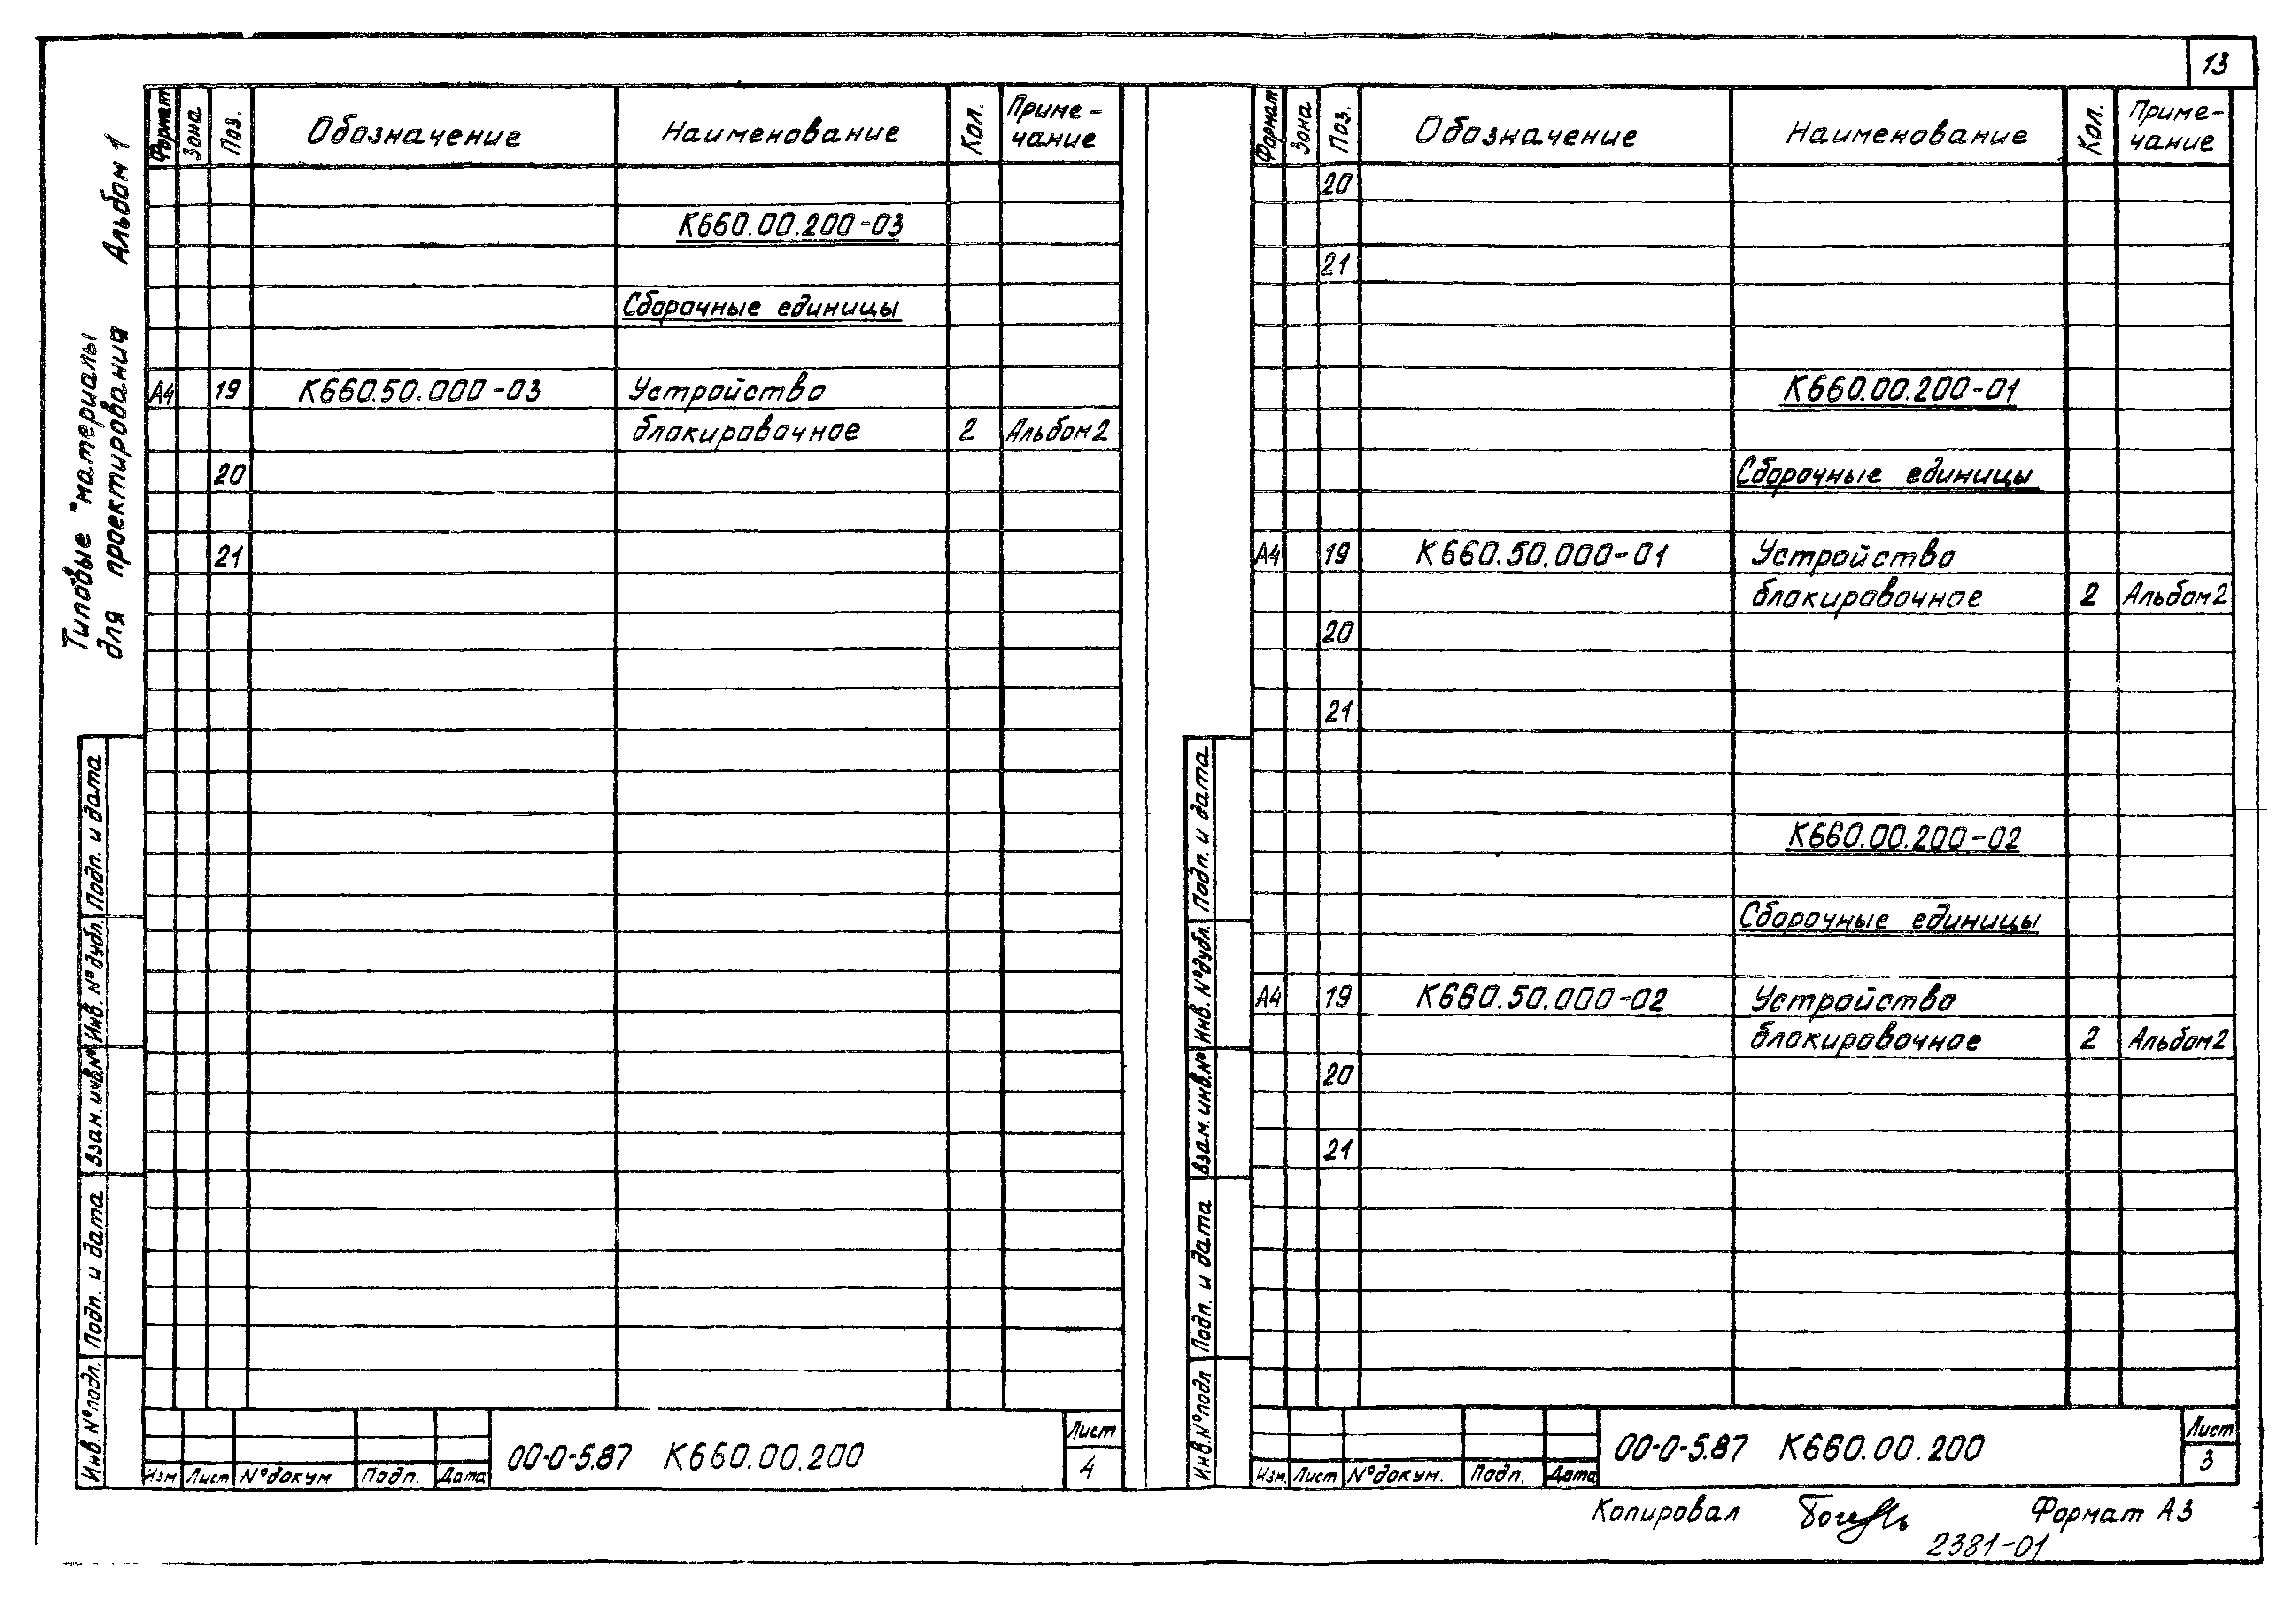 13
Типовые материалы
для проектирования Альбом 1
Формат Зона Поз. Обозначение Наименование Кол. Приме-
чание
К660.00.200-03
Сборочные единицы
А4 19 К660.50.000-03 Устройство
блокировочное 2 Альбом 2
20
21
Инв. № подл. Подп. и дата Взам. инв. № Инв. № дубл. Подп. и дата
Изм Лист № докум Подп. Дата
00-0-5.87 К660.00.200
Лист
4
Формат Зона Поз. Обозначение Наименование Кол. Приме-
чание
20
21
К660.00.200-01
Сборочные единицы
А4 19 К660.50.000-01 Устройство
блокировочное 2 Альбом 2
20
21
К660.00.200-02
Сборочные единицы
А4 19 К660.50.000-02 Устройство
блокировочное 2 Альбом 2
20
21
Инв. № подл Подп. и дата Взам. инв. № Инв. № дубл. Подп. и дата
Изм. Лист № докум. Подп. Дата
00-0-5.87 К660.00.200
Лист
3
Копировал Формат А3
2381-01